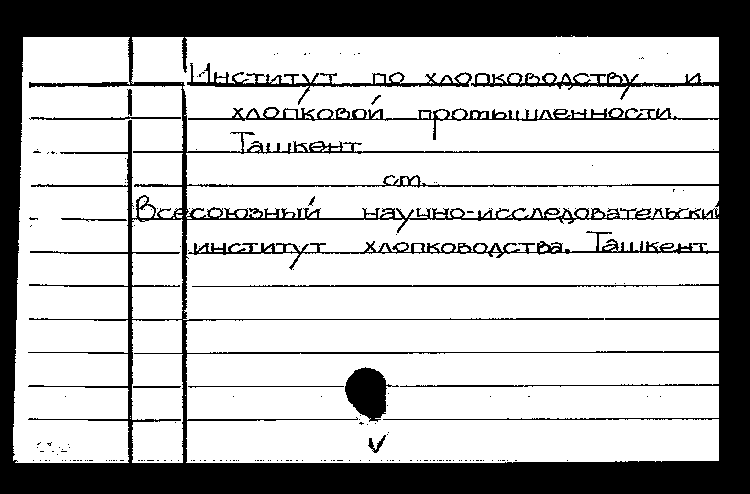 Институт по хлопководству и
хлопковой промышленности.
Ташкент.
ст.
Всесоюзный научно-исследовательский
институт хлопководства. Ташкент.